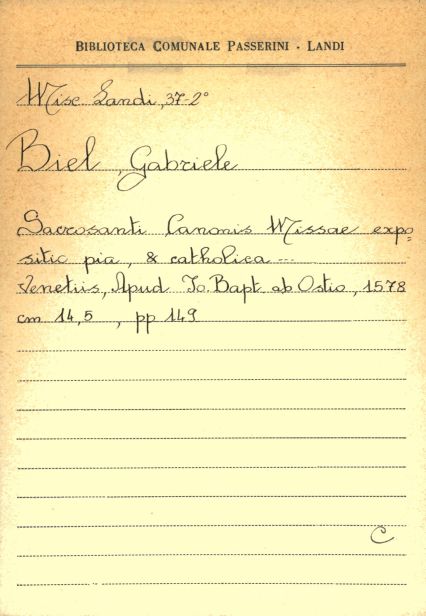 BIBLIOTECA COMUNALE PASSERINI - LANDI
Misc. Landi, 37-2°
Biel, Gabriele
Sacrosanti Canonis Missae expo=
sitio pia, & catholica ---
Venetiis, Apud Io. Bapt. ab Ostio, 1578
cm 14,5 , pp 149
C